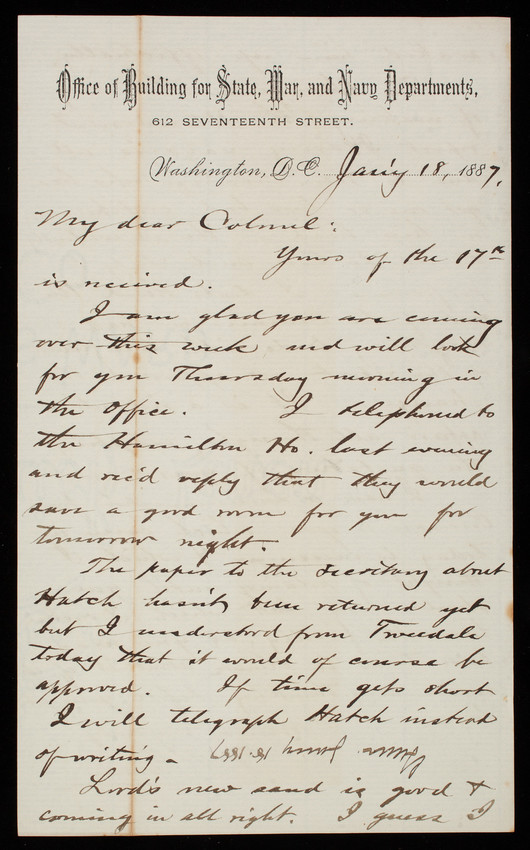 Office of Building for State, War, and Navy Departments,
612 SEVENTEENTH STREET.
Washington, D.C. Jan'y 18, 1887.
My dear Colonel:
Yours of the 17th
is received.
I am glad you are coming
over this week and will look
for you Thursday morning in
the office. I telephoned to
the Hamilton Ho. last evening
and rec'd reply that they would
save a good room for you for
tomorrow night.
The paper to the Secretary about
Hatch hasn't been returned yet
but I understood from Tweedale
today that it would of course be
approved. If time gets short
I will telegraph Hatch instead
of writing.
January 18 1887
Lord's new sand is good &
coming in all right. I guess I